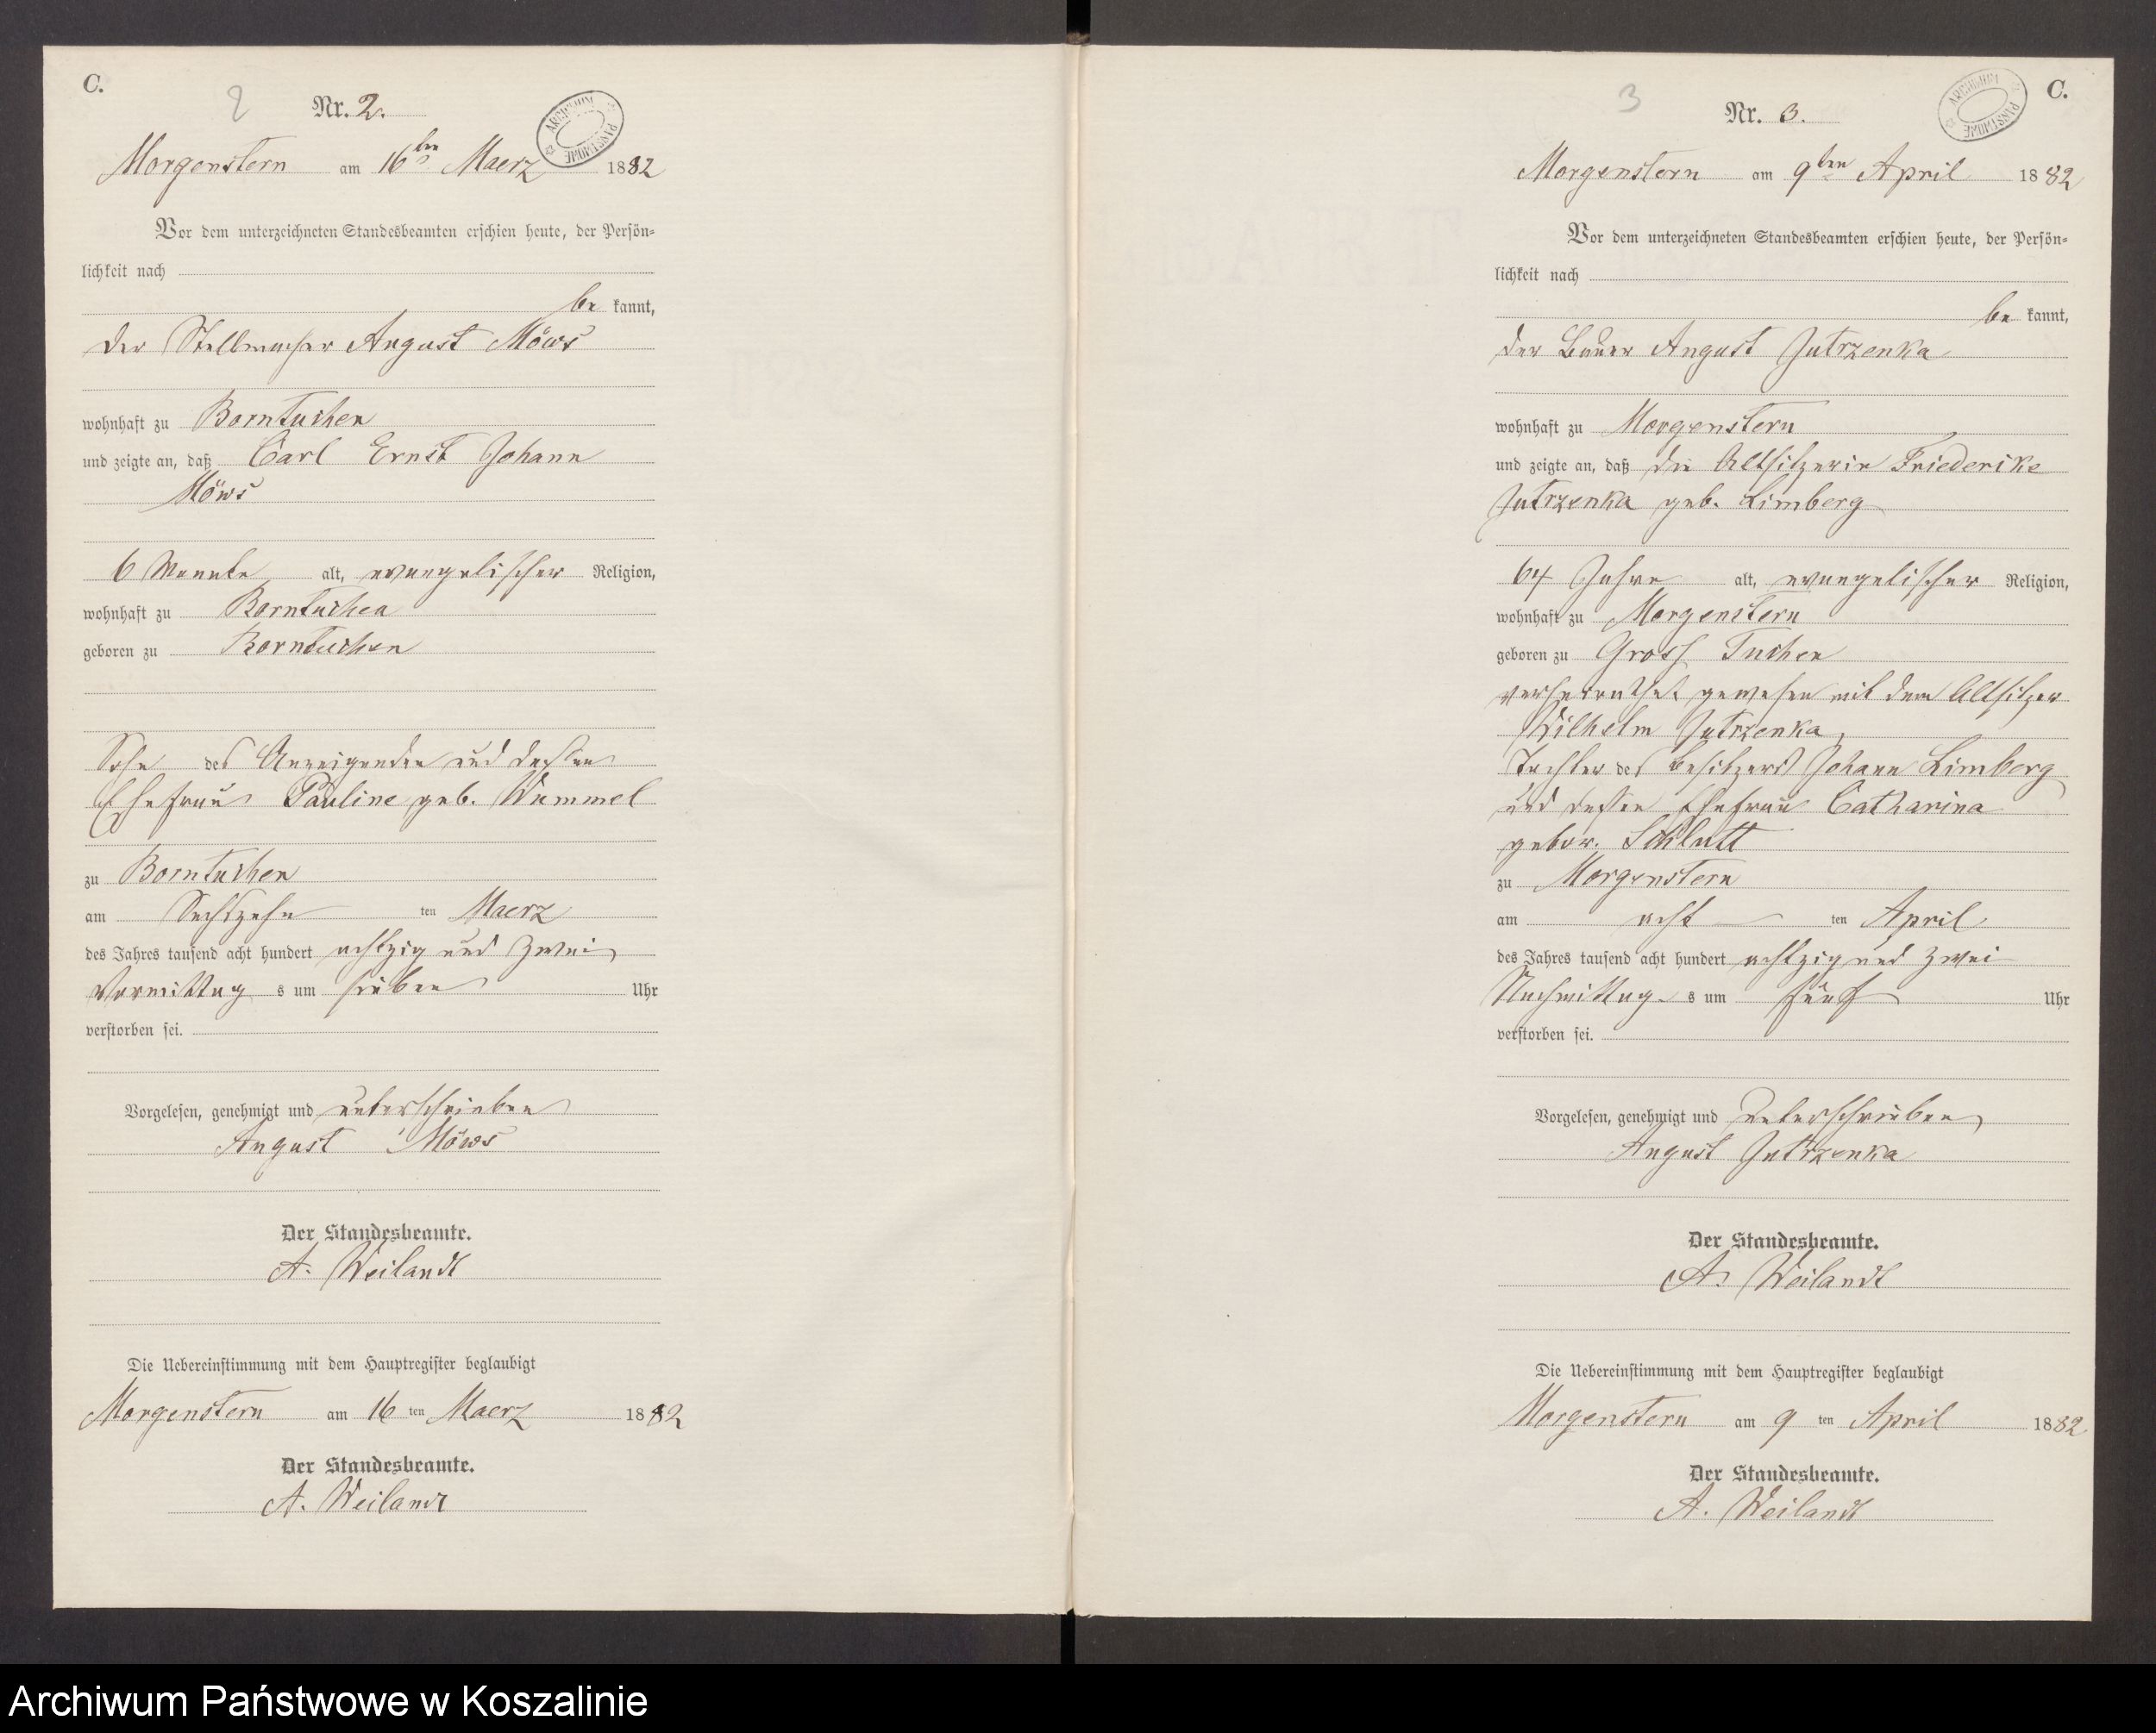 C.
2
Nr. 2.
ARCHIWUM PAŃSTWOWE
Morgenstern am 16ten Maerz 1882
Vor dem unterzeichneten Standesbeamten erschien heute, der Persön-
lichkeit nach
be kannt,
der Stellmacher August Möws
wohnhaft zu Borntuchen
und zeigte an, daß Carl Ernst Johann
Möws
6 Monate alt, evangelischer Religion,
wohnhaft zu Borntuchen
geboren zu Borntuchen
Sohn des Anzeigenden und dessen
Ehefrau Pauline geb. Wummel
zu Borntuchen
am Sechszehn ten Maerz
des Jahres tausend acht hundert achtzig und zwei
Vormittag s um sieben Uhr
verstorben sei.
Vorgelesen, genehmigt und unterschrieben
August Möws
Der Standesbeamte.
A. Weilandt
Die Uebereinstimmung mit dem Hauptregister beglaubigt
Morgenstern am 16 ten Maerz 1882
Der Standesbeamte.
A. Weilandt
C.
3
Nr. 3.
ARCHIWUM PAŃSTWOWE
Morgenstern am 9ten April 1882
Vor dem unterzeichneten Standesbeamten erschien heute, der Persön-
lichkeit nach
be kannt,
der Bauer August Jutrzenka
wohnhaft zu Morgenstern
und zeigte an, daß die Altsitzerin Friederike
Jutrzenka geb. Limberg
64 Jahre alt, evangelischer Religion,
wohnhaft zu Morgenstern
geboren zu Gross Tuchen
verheirathet gewesen mit dem Altsitzer
Wilhelm Jutrzenka,
Tochter des Besitzers Johann Limberg
und dessen Ehefrau Catharina
gebor. Schlutt
zu Morgenstern
am acht ten April
des Jahres tausend acht hundert achtzig und zwei
Nachmittag s um fünf Uhr
verstorben sei.
Vorgelesen, genehmigt und unterschrieben
August Jutrzenka
Der Standesbeamte.
A. Weilandt
Die Uebereinstimmung mit dem Hauptregister beglaubigt
Morgenstern am 9 ten April 1882
Der Standesbeamte.
A. Weilandt
Archiwum Państwowe w Koszalinie